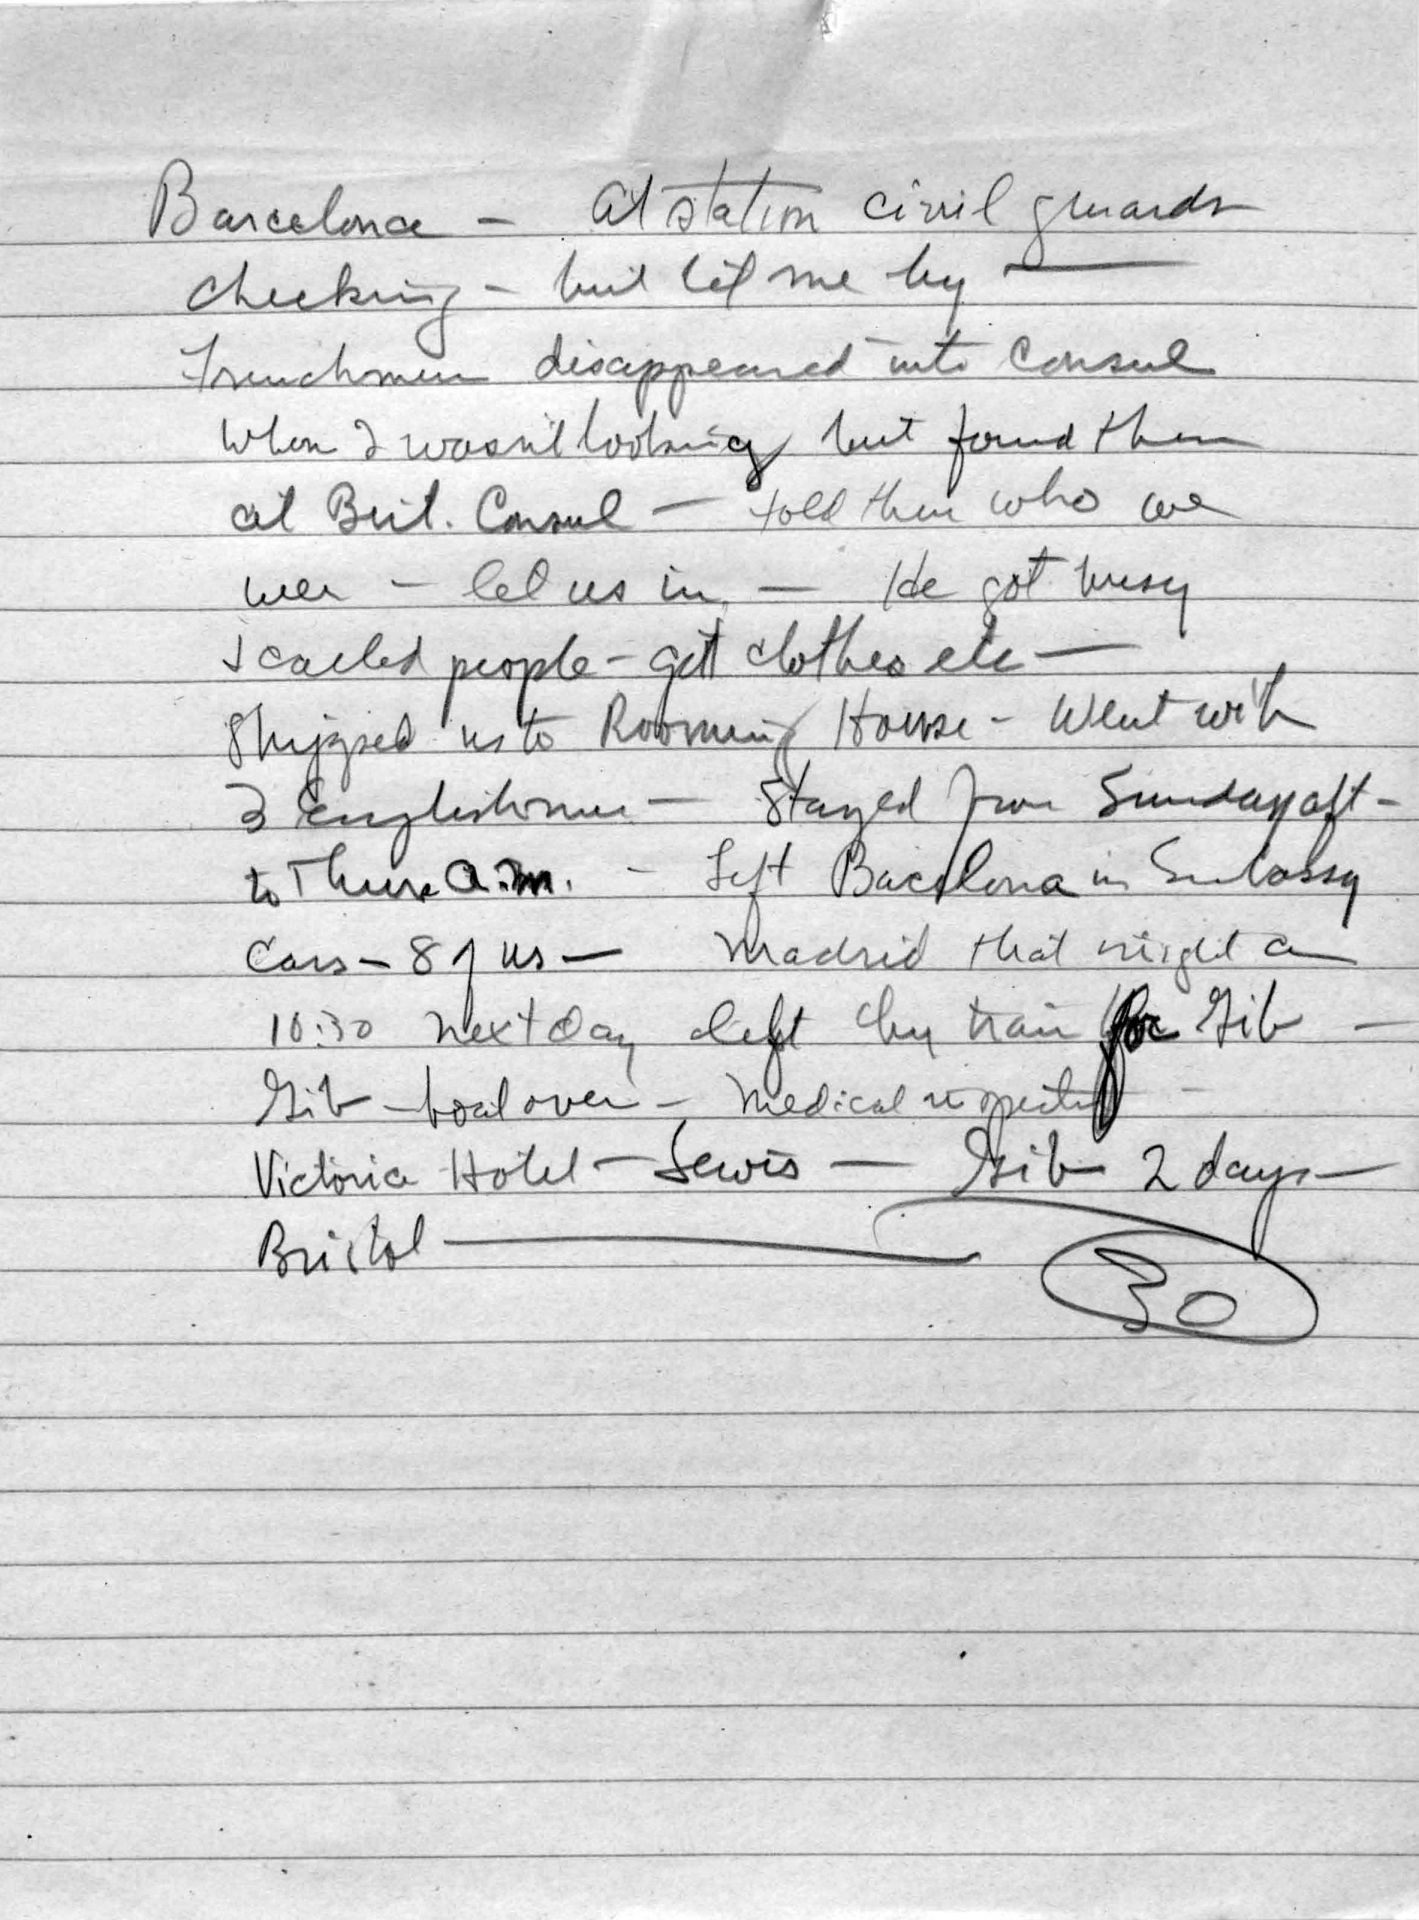 Barcelona - At station civil guards
checking - but let me by
Frenchmen disappeared into Consul
when I wasn't looking but found them
at Brit. Consul - told them who we
were - let us in - He got busy
& called people - get clothes etc -
Shipped us to Rooming House - Went with
3 Englishmen - Stayed from Sunday aft -
to Thurs a.m. - Left Barcelona in Embassy
Cars - 8 of us - Madrid that night a
10:30 next day left by train for Gib -
Gib - boat over - Medical inspection -
Victoria Hotel - Lewis - Gib 2 days -
Bristol
30